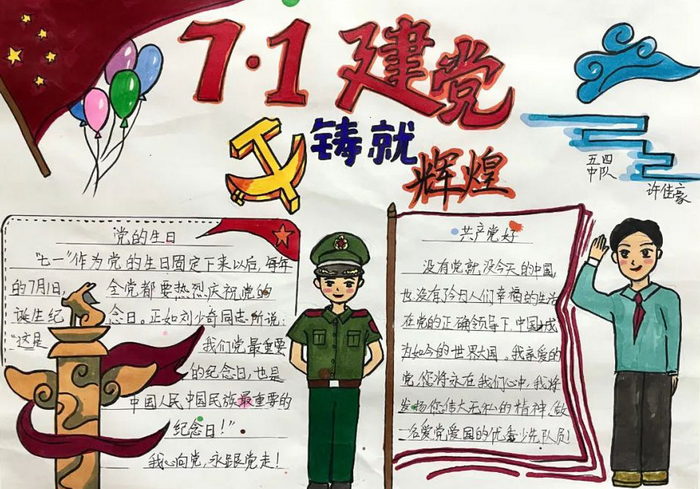 7·1建党
铸就
辉煌
五四
中队
许佳豪
党的生日
"七一"作为党的生日固定下来以后,每年
的7月1日,全党都要热烈庆祝党的
诞生纪念日。正如刘少奇同志所说:
"这是我们党最重要
的纪念日,也是
中国人民中国民族最重要的
纪念日!"
我心向党,永跟党走!
共产党好
没有党就没今天的中国,
也没有今日人们幸福的生活
在党的正确领导下中国成
为如今的世界大国,我亲爱的
党,您将永在我们心中,我将
发扬您伟大无私的精神,做
一名爱党爱国的优秀少先队员!